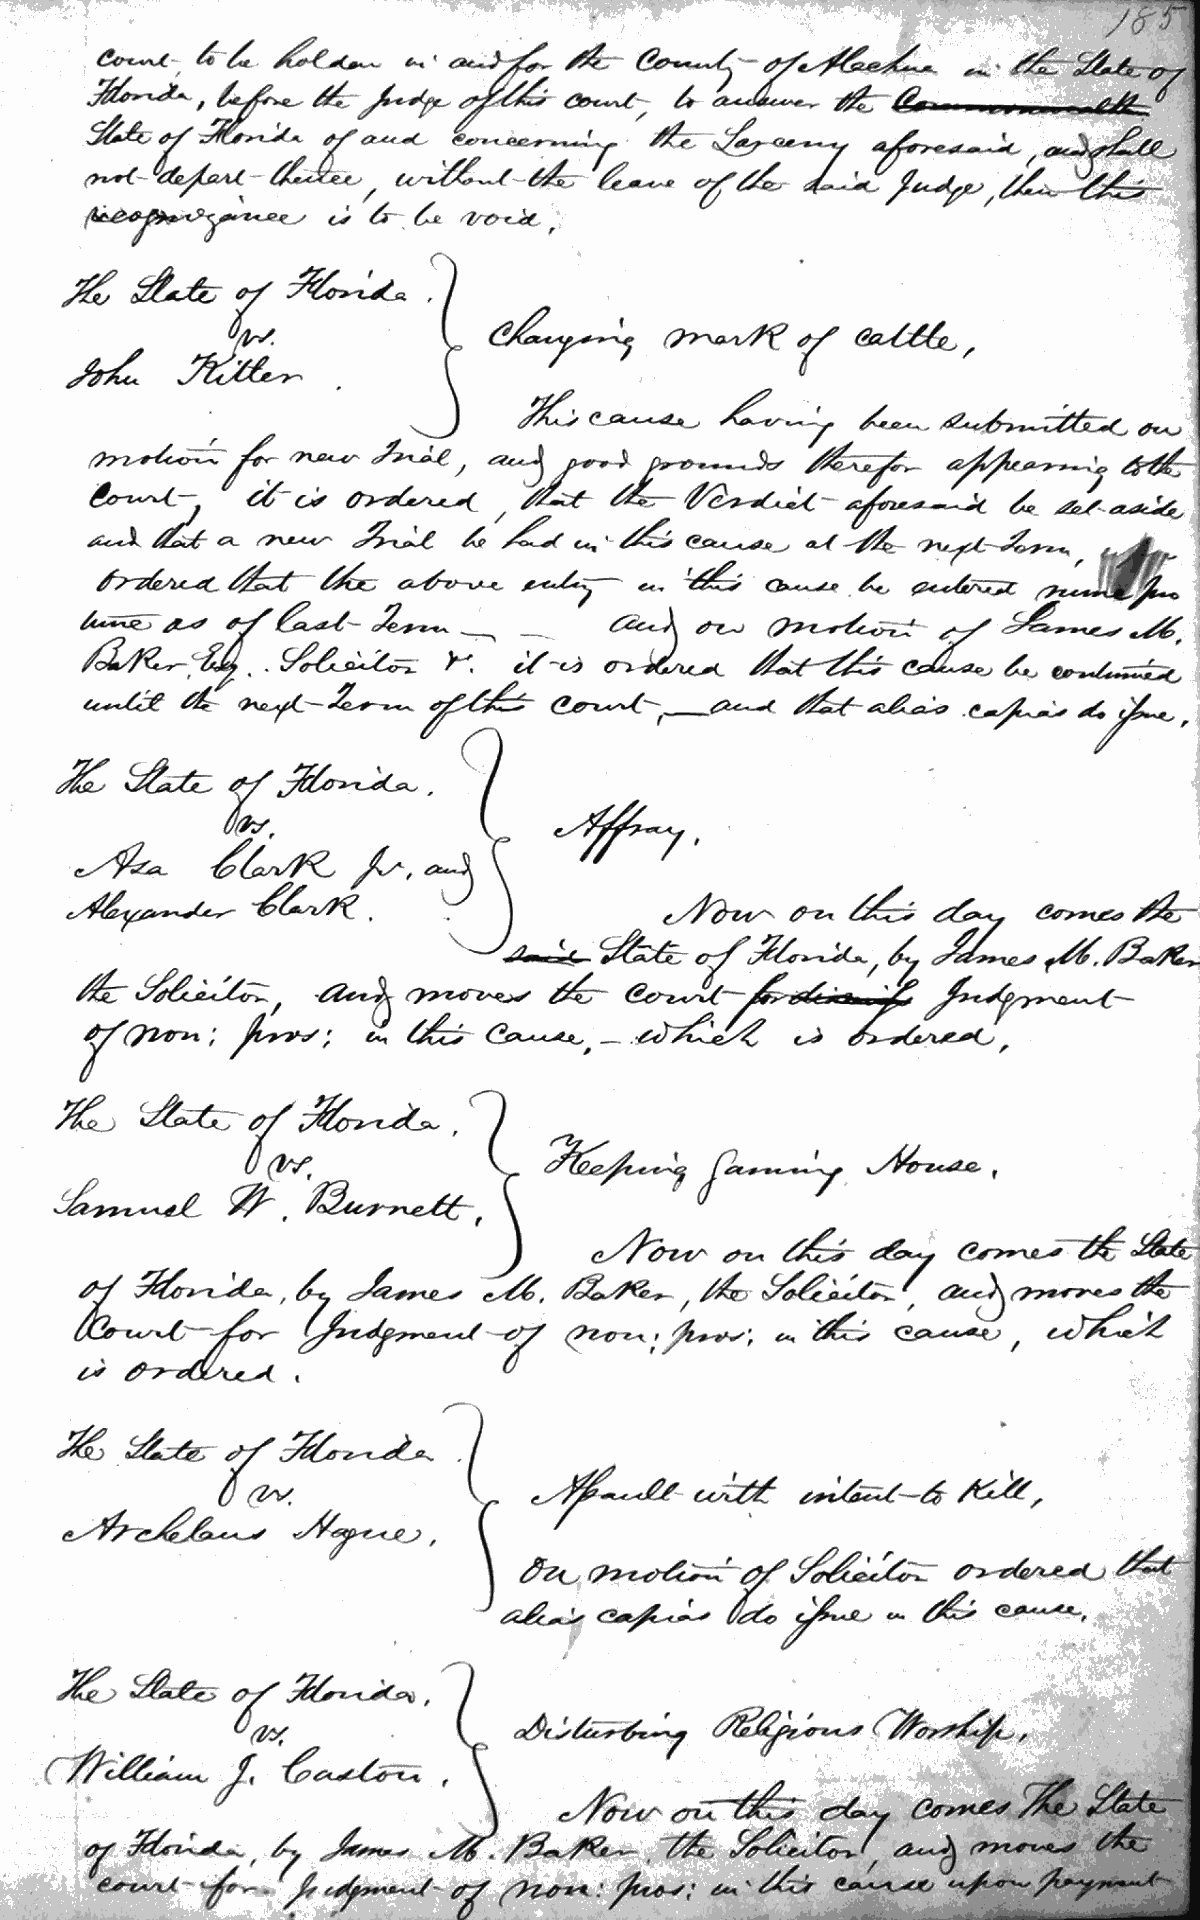 185
court, to be holden in and for the County of Alachua in the State of
Florida, before the Judge of this court, to answer the Commonwealth
State of Florida of and concerning the Larceny aforesaid, and shall
not depart thence, without the leave of the said Judge, then this
recognizance is to be void.
The State of Florida.
vs.
John Kitler.
Changing mark of cattle,
This cause having been submitted on
motion for new Trial, and good grounds therefor appearing to the
Court, it is ordered, that the Verdict aforesaid be set aside
and that a new Trial be had in this cause at the next Term,
ordered that the above entry in this cause be entered nunc pro
tunc as of last Term — — and on motion of James M.
Baker, Esq. Solicitor &. it is ordered that this cause be continued
until the next Term of this court, — and that alias capias do issue.
The State of Florida.
vs.
Asa Clark Jr. and
Alexander Clark.
Affray.
Now on this day comes the
said State of Florida, by James M. Baker
the Solicitor, and moves the court for dismiss Judgment
of non: pros: in this cause, – which is ordered.
The State of Florida.
vs.
Samuel W. Burnett.
Keeping Gaming House.
Now on this day comes the State
of Florida, by James M. Baker, the Solicitor, and moves the
Court for Judgment of non: pros: in this cause, which
is ordered.
The State of Florida
vs.
Archelaus Hogue.
Assault with intent to Kill,
On motion of Solicitor ordered that
alias capias do issue in this cause.
The State of Florida.
vs.
William J. Caston.
Disturbing Religious Worship.
Now on this day comes The State
of Florida, by James M. Baker, the Solicitor, and moves the
court for Judgment of non: pros: in this cause upon payment